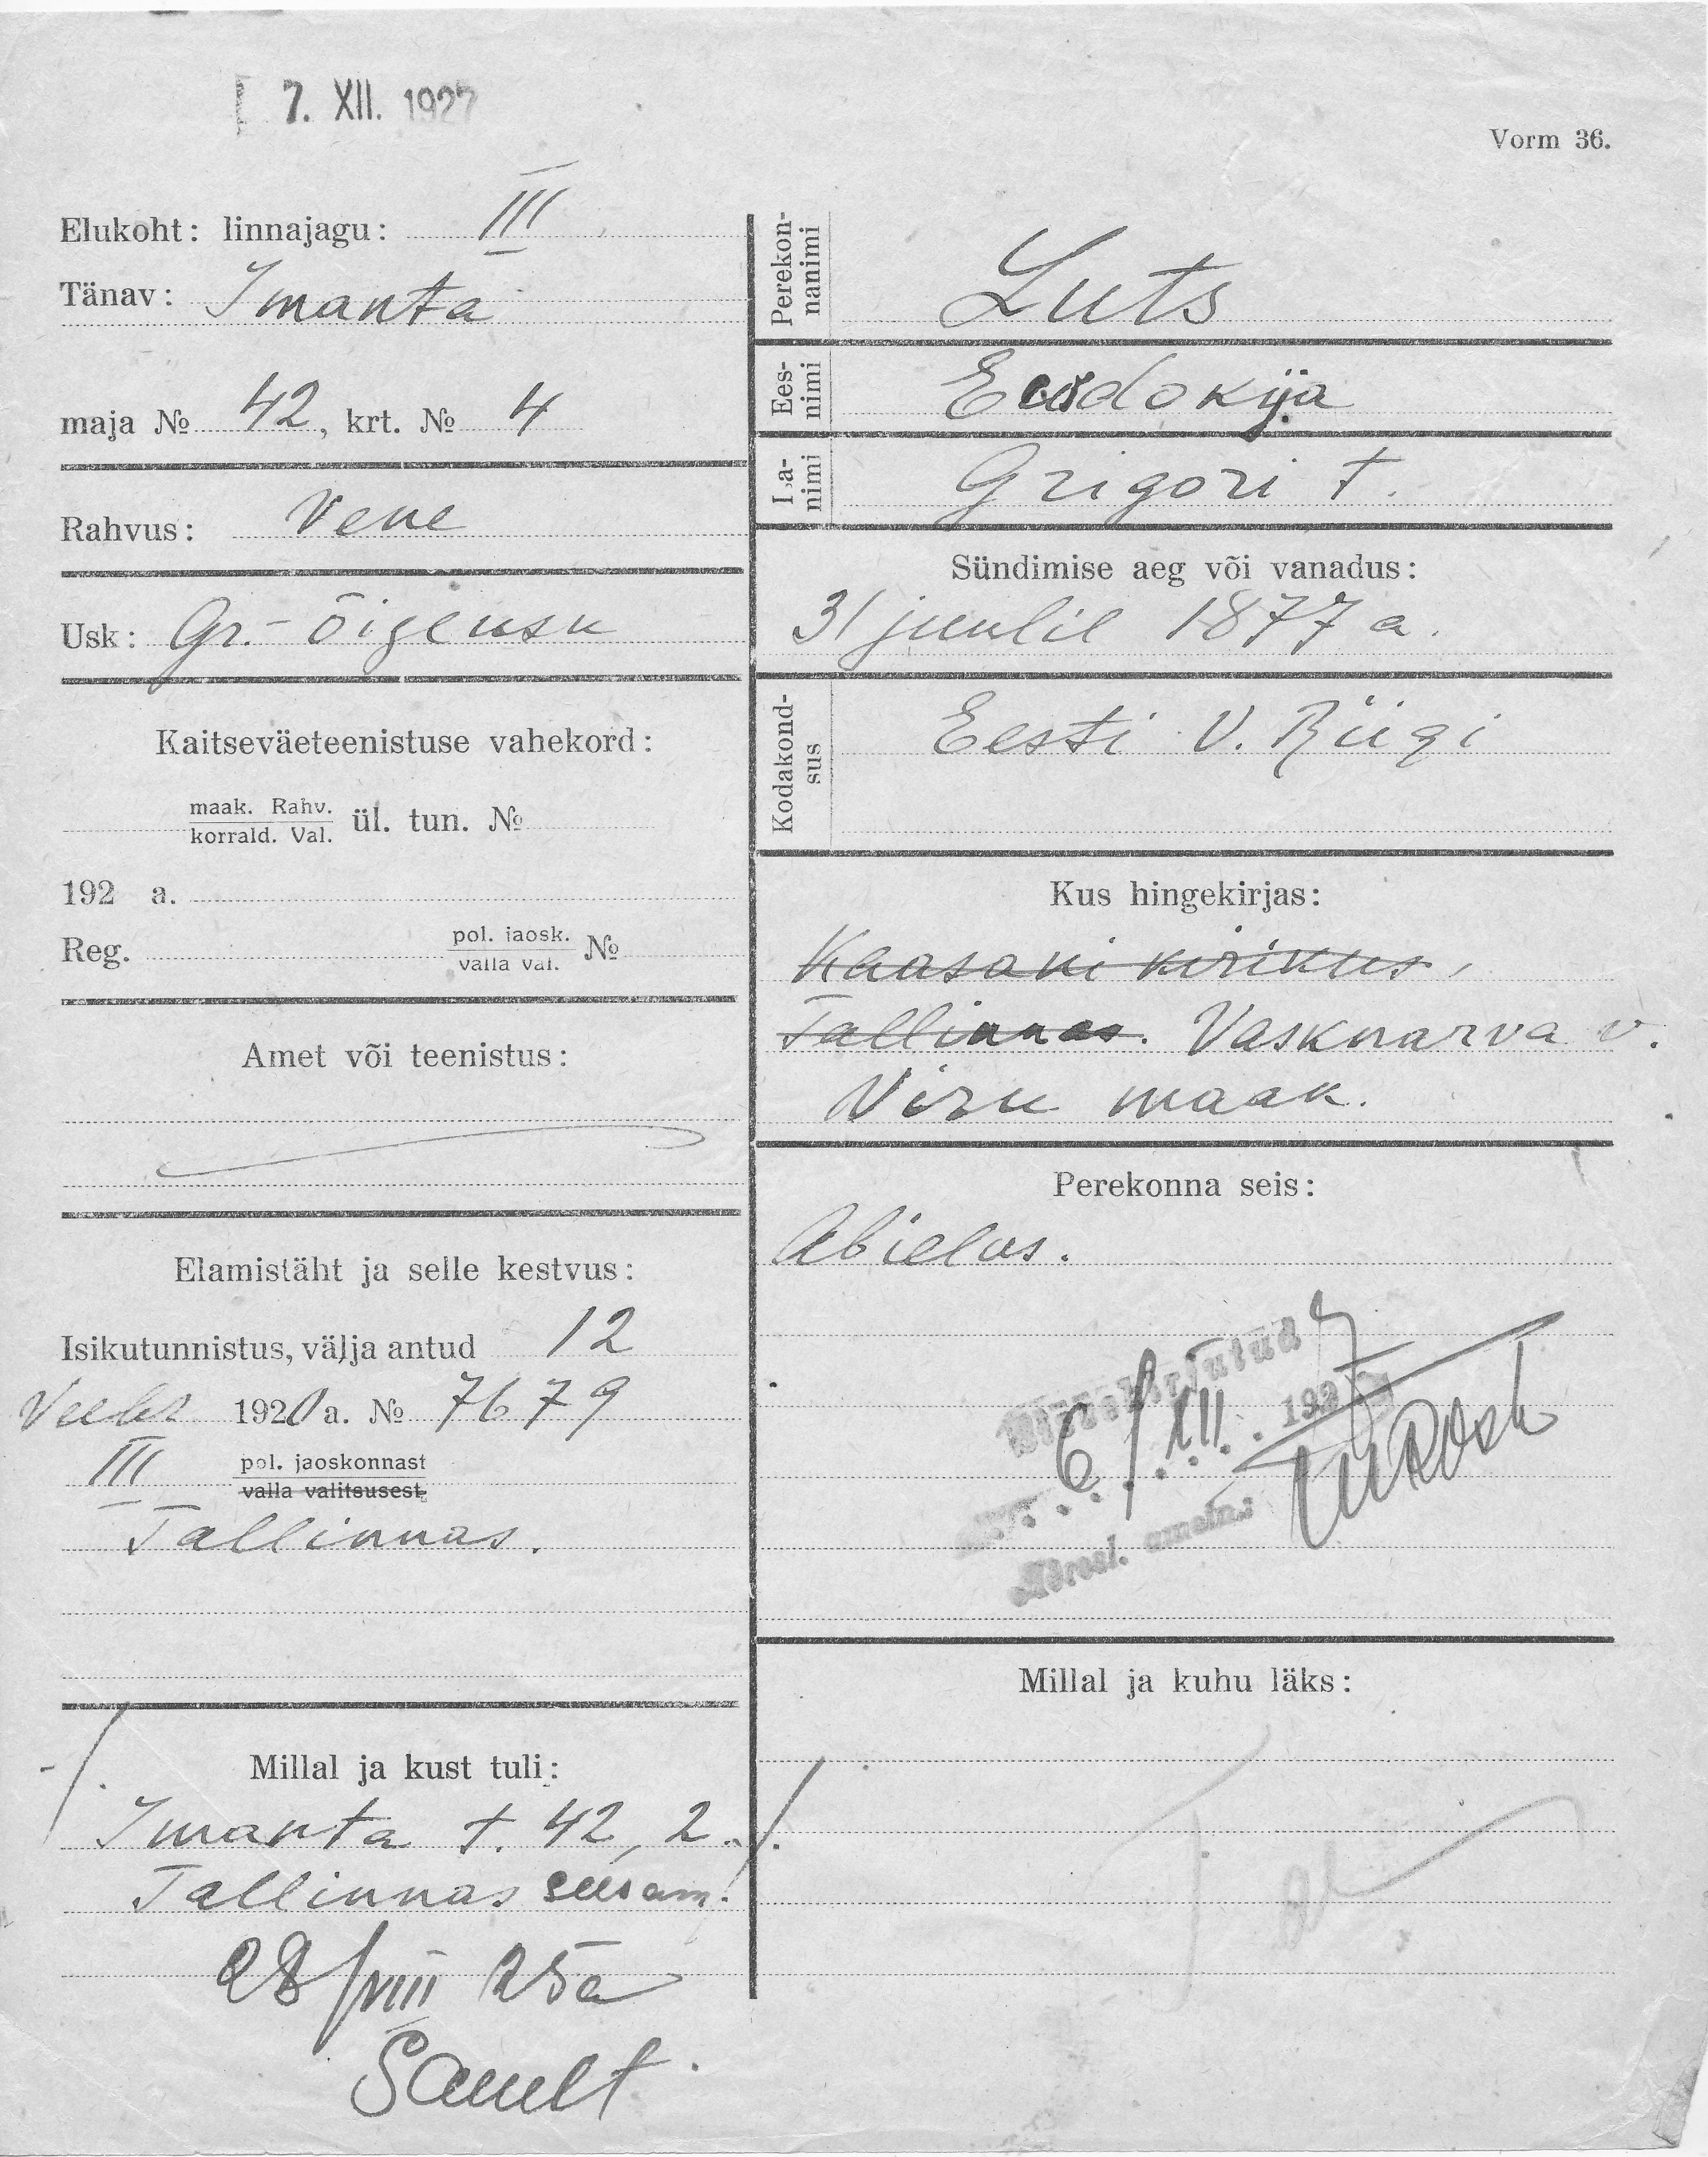 7. XII. 1927
Vorm 36.
Elukoht: linnajagu: III
Tänav: Imanta
maja № 42, krt. № 4
Rahvus: Vene
Usk: Gr.-õigeusu
Kaitseväeteenistuse vahekord:
maak. Rahv.
korrald. Val.
ül. tun. №
192 a.
Reg. pol. jaosk. №
valla val.
Amet või teenistus:
Elamistäht ja selle kestvus:
Isikutunnistus, välja antud 12
Veebr 1920 a. № 7679
III pol. jaoskonnast
valla valitsusest
Tallinnas.
Millal ja kust tuli:
Imanta t. 42, 2.
Tallinnas seesam.
28/VIII 25 a
Perekon-
nanimi
Luts
Ees-
nimi
Eudokija
Isa-
nimi
Grigori t.
Sündimise aeg või vanadus:
31 juulil 1877 a.
Kodakond-
sus
Eesti V. Riigi
Kus hingekirjas:
Kaasani kirikus,
Tallinnas. Vasknarva v.
Viru maak.
Perekonna seis:
Abielus.
6/XII 1927
Millal ja kuhu läks: